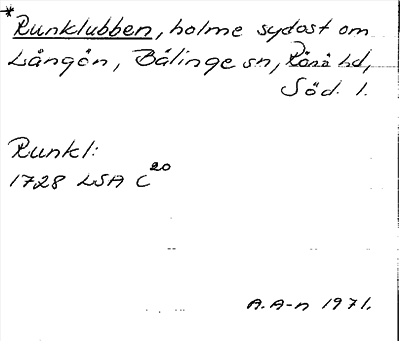 *Runklubben, holme sydost om
Långön, Bälinge sn, Rönö hd,
Söd. l.
Runkl:
1728 LSA C²⁰
A. A-n 1971.